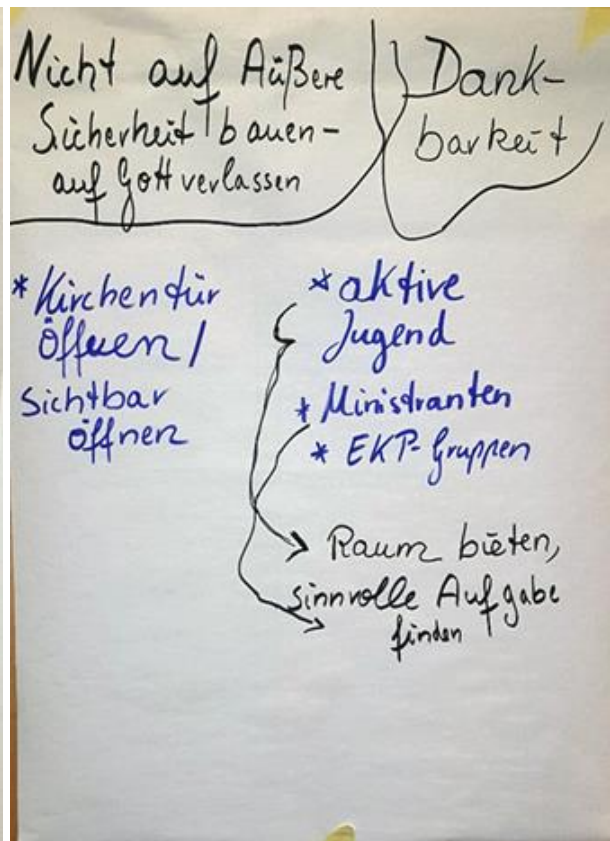 Nicht auf Äußere
Sicherheit bauen-
auf Gott verlassen
Dank-
barkeit
* Kirchentür
Öffnen /
Sichtbar
öffnen
* aktive
Jugend
* Ministranten
* EKP-Gruppen
Raum bieten,
sinnvolle Aufgabe
finden